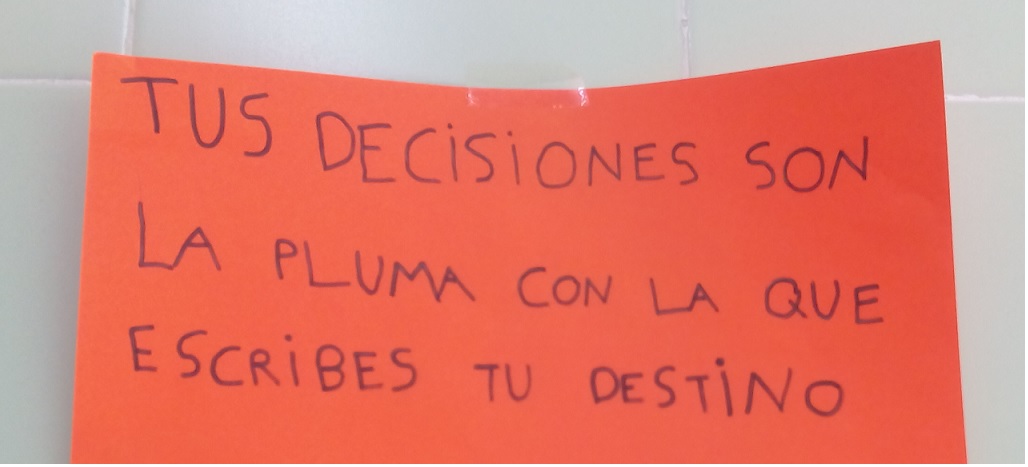 TUS DECISIONES SON
LA PLUMA CON LA QUE
ESCRIBES TU DESTINO